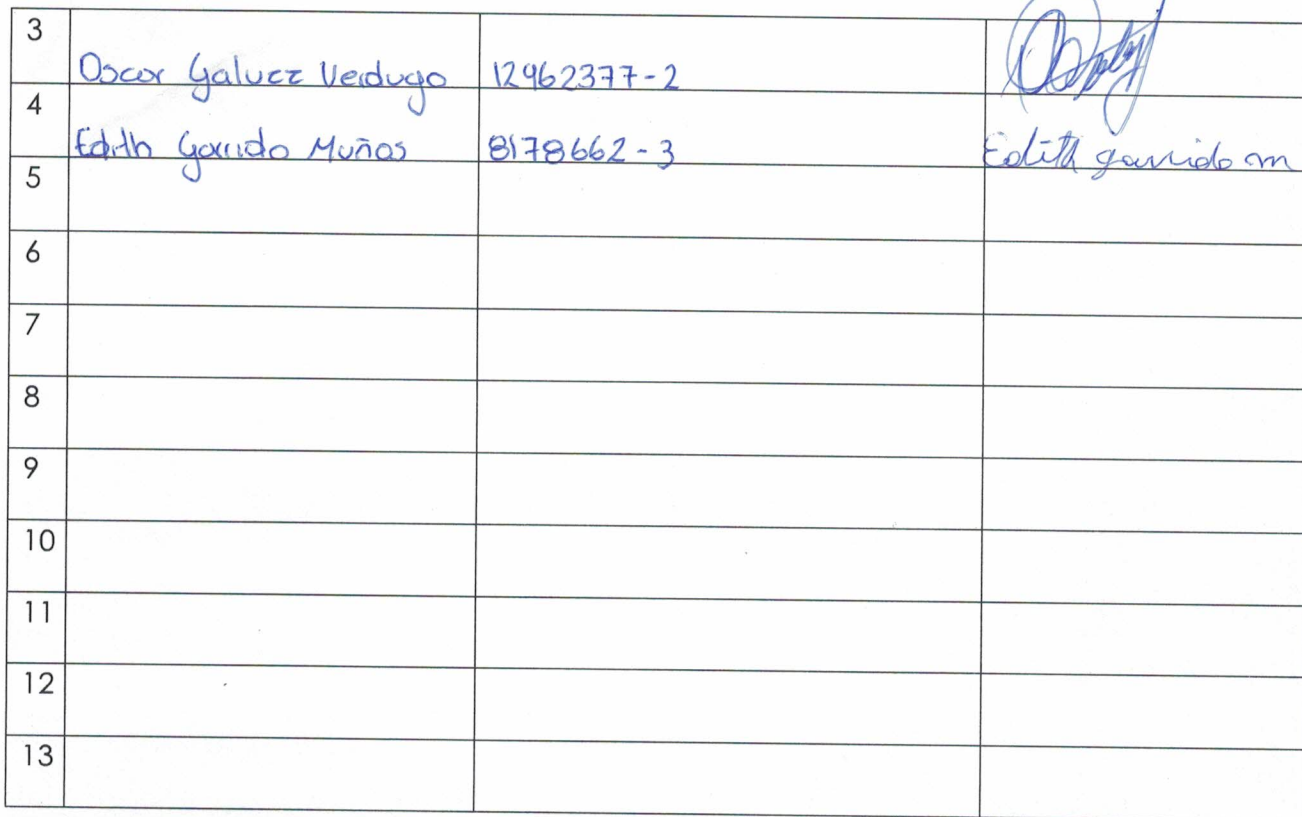 3 Oscar Galvez Verdugo 12962377-2
4 Edith Garrido Muñas 8178662-3 Edith garrido m
5
6
7
8
9
10
11
12
13